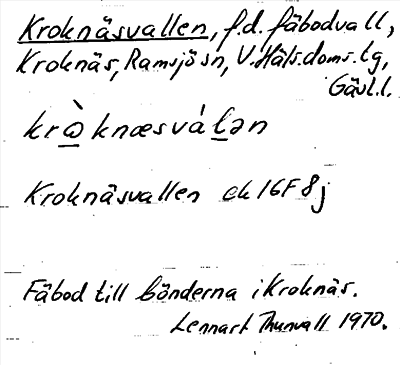 Kroknäsvallen, f.d. fäbodvall,
Kroknäs, Ramsjö sn, V. Häls. doms. tg,
Gävl. l.
krὼknæsválən
Kroknäsvallen ek 16F 8j
Fäbod till bönderna i Kroknäs.
Lennart Thunvall 1970.